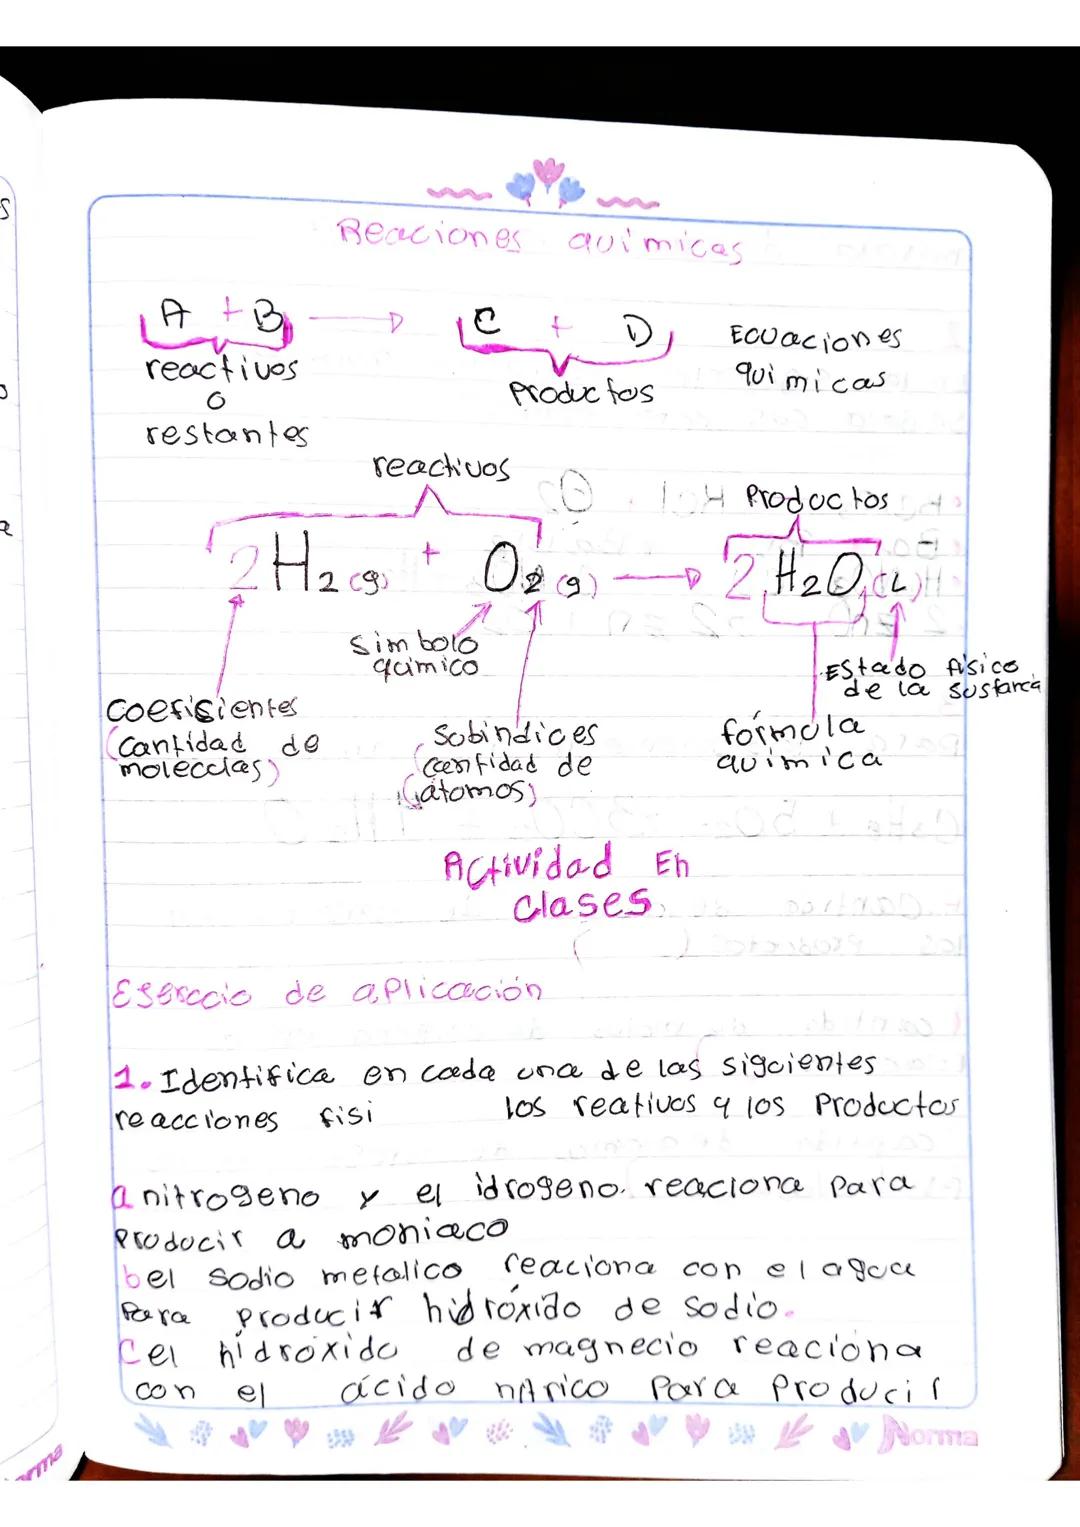 Reaciones quimicas
A + B → C + D Ecuaciones
reactivos Productos quimicas
o
restantes
reactivos Productos
2 H2 (g) + O2 (g) → 2 H2O (L)
simbolo
quimico
Estado fisico
de la sustancia
coefisientes
(cantidad de
moleculas)
Subindices
cantidad de
(átomos)
fórmula
quimica
Actividad En
clases
Esercicio de aplicación
1. Identifica en cada una de las siguientes
reacciones fisi los reativos y los Productos
a nitrogeno y el idrogeno. reaciona Para
Producir a moniaco
b el sodio metalico reaciona con el agua
Para producir hidróxido de sodio.
C el hidróxido de magnecio reaciona
con el ácido nitrico Para Producir
Norma